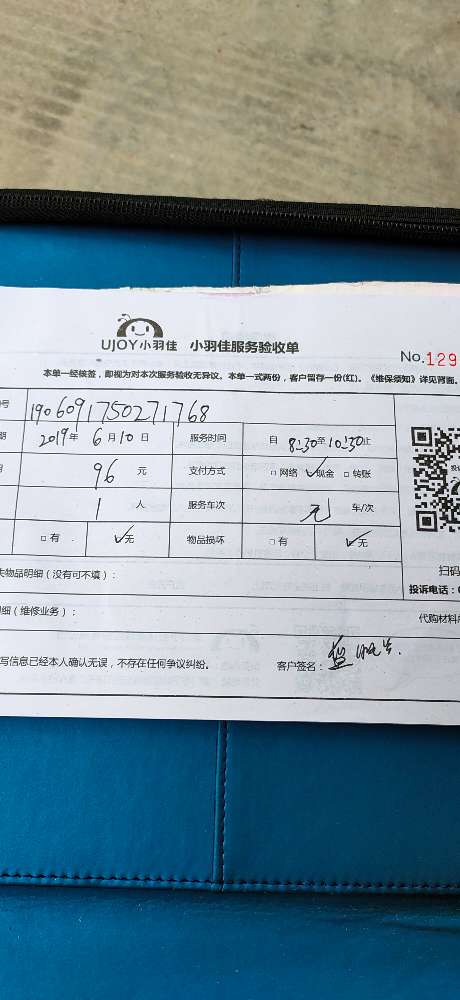 UJOY小羽佳 小羽佳服务验收单
No.129
本单一经核签，即视为对本次服务验收无异议。本单一式两份，客户留存一份(红)。《维保须知》详见背面。
号 1906091750271768
期 2019年 6月10日 服务时间 自 8:30至 10:30止
96 元 支付方式 □ 网络 ✓现金 □ 转账
1 人 服务车次 无 车/次
□ 有 ✓无 物品损坏 □ 有 ✓无
扫码
失物品明细（没有可不填）： 投诉电话：0
细（维修业务）： 代购材料
写信息已经本人确认无误，不存在任何争议纠纷。 客户签名：